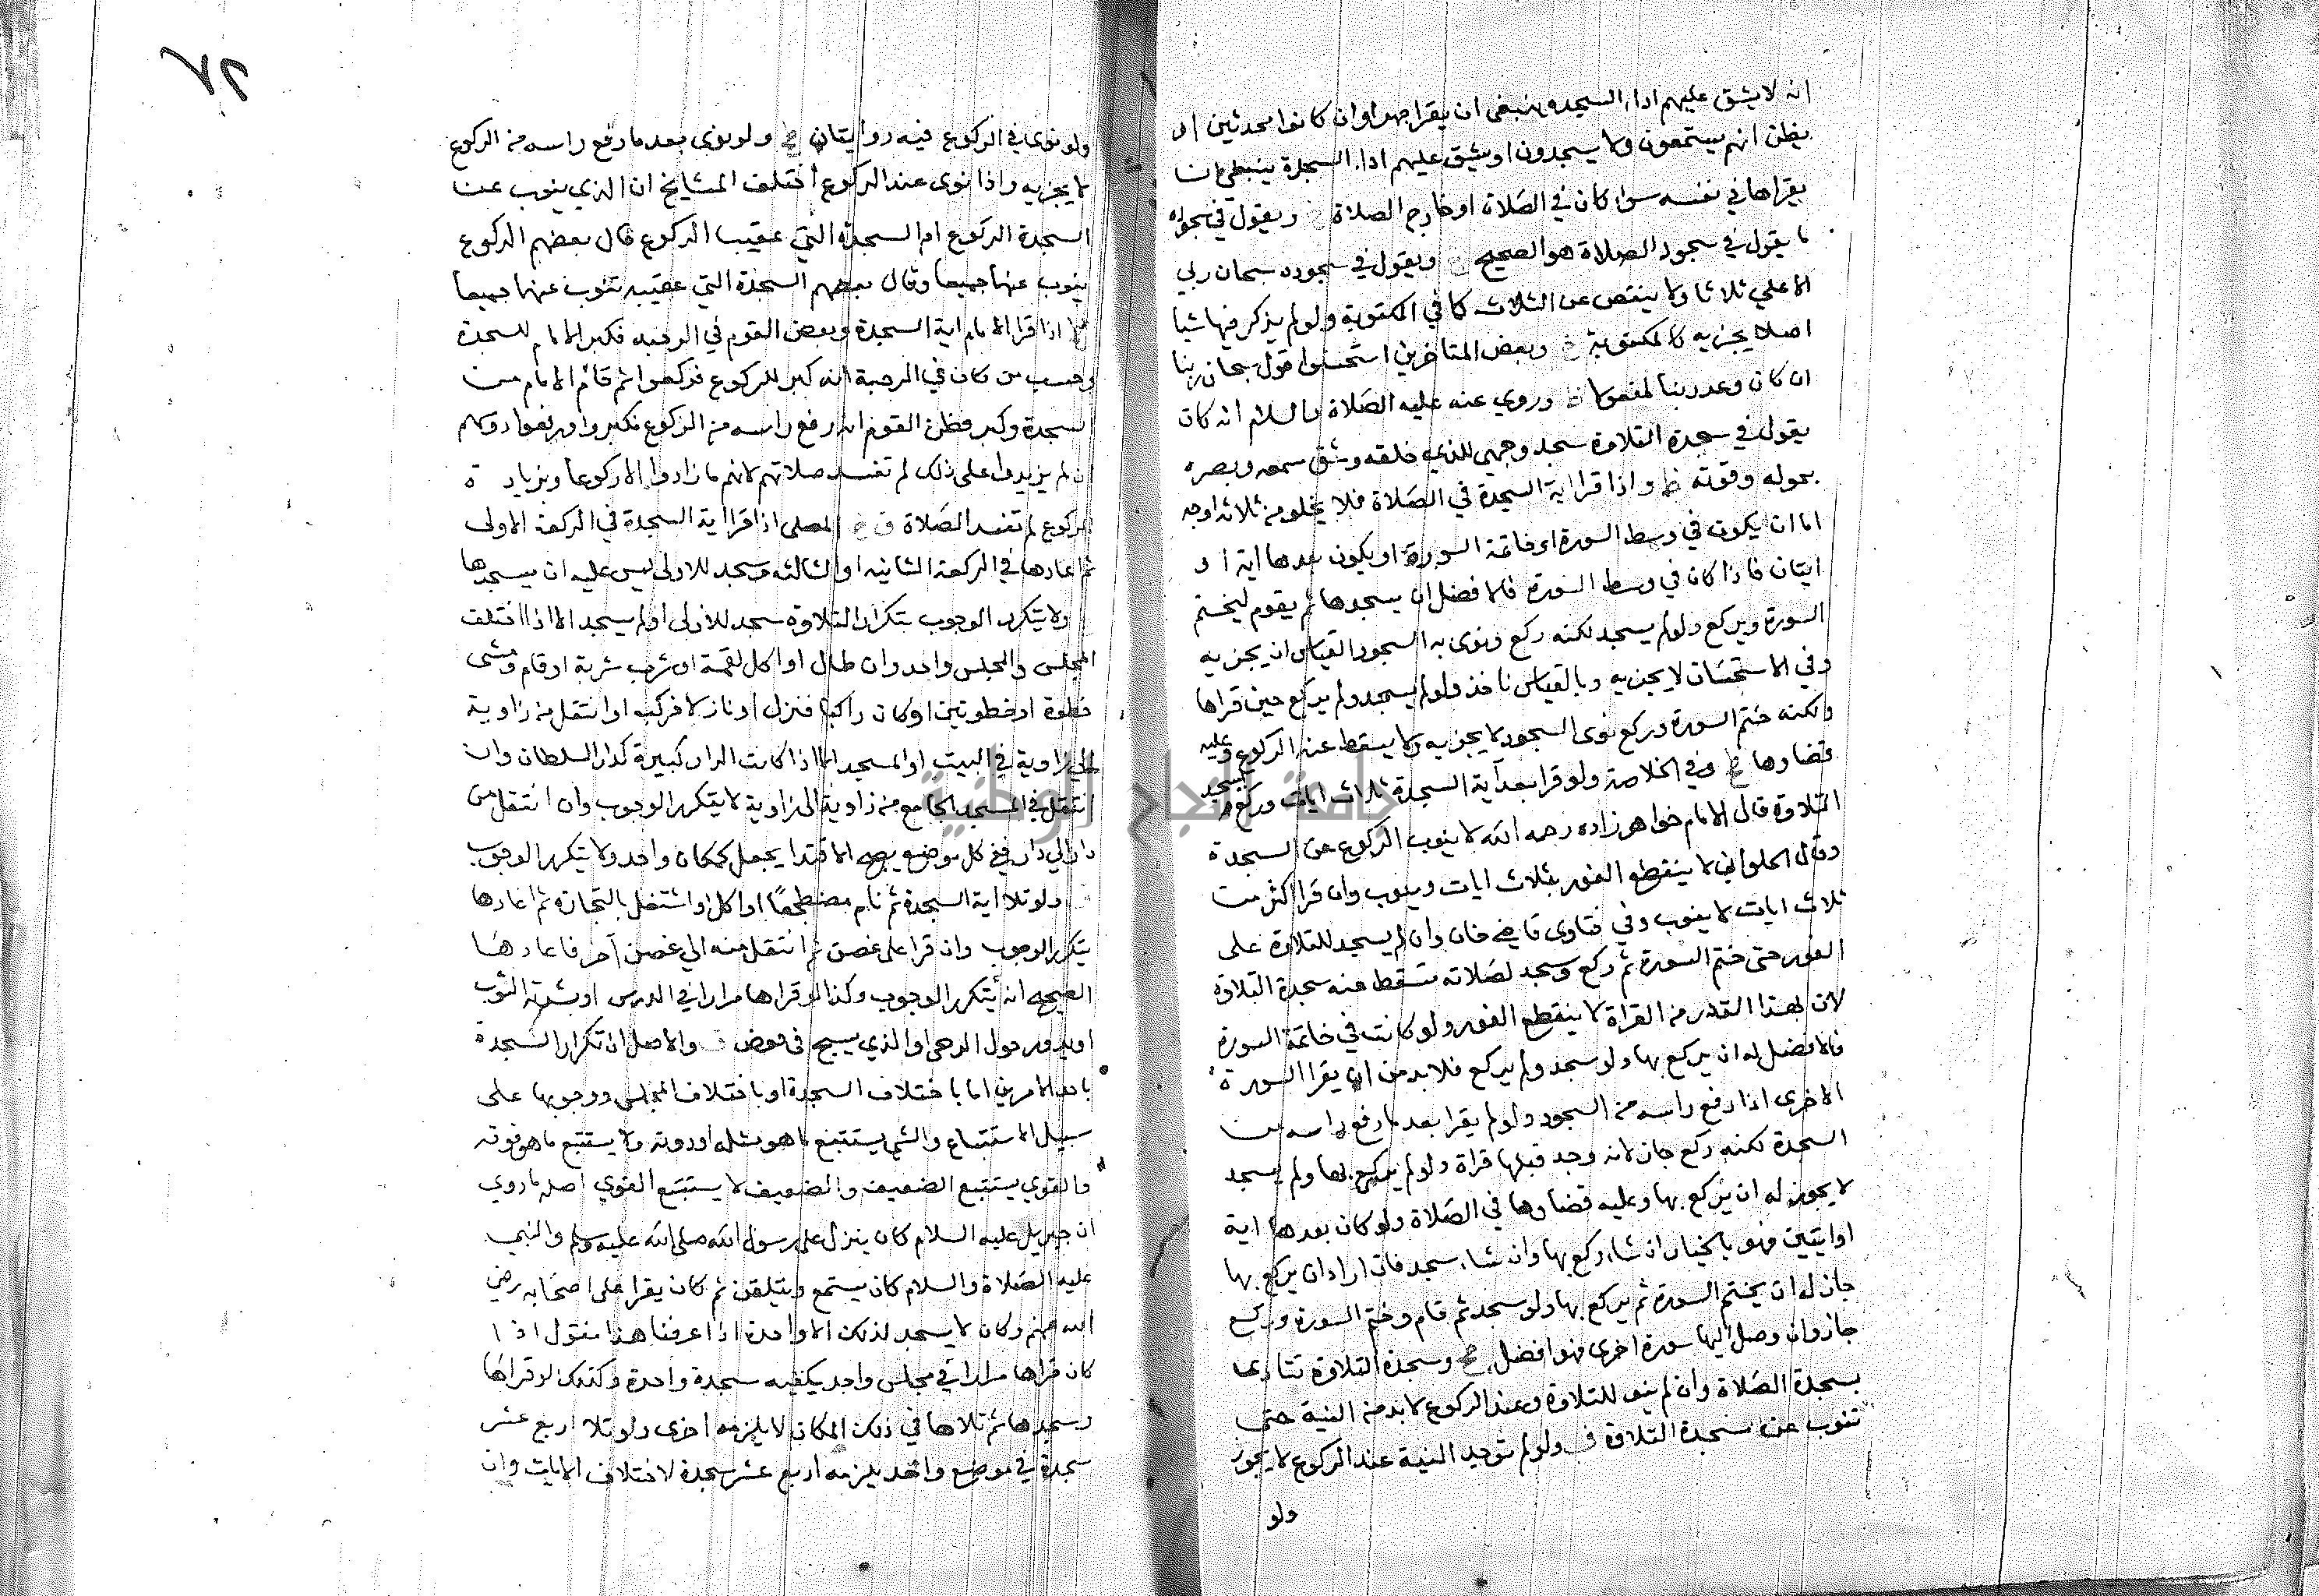 انه لا يشق عليهم اداء السجدة ينبغي ان يقرا جهرا وان كانوا محدثين او
يظن انهم يستمعون ولا يسجدون او يشق عليهم اداء السجدة ينبغي ان
يقراها في نفسه سوا كان في الصلاة او خارج الصلاة ويقول في سجوده
ما يقول في سجود الصلاة هو الصحيح ويقول في سجوده سبحان ربي
الاعلي ثلاثا ولا ينتقص عن الثلاث كما في المكتوبة ولو لم يذكر فيها شيا
اصلا يجزيه كالمكتوبة وبعض المتاخرين استحسنوا قول سبحان ربنا
ان كان وعد ربنا لمفعولا وروي عنه عليه الصلاة والسلام انه كان
يقول في سجدة التلاوة سجد وجهي للذي خلقه وشق سمعه وبصره
بحوله وقوته واذا قرا اية السجدة في الصلاة فلا يخلو من ثلاثه اوجه
اما ان يكون في وسط السورة او خاتمة السورة او يكون بعدها اية او
ايتان فاذا كان في وسط السورة فالافضل ان يسجدها ثم يقوم ليختم
السورة ويركع ولو لم يسجد لكنه ركع ونوى به السجود القياس ان يجزيه
وفي الاستحسان لا يجزيه وبالقياس ناخذ ولو لم يسجد ولم يركع حين قراها
ولكنه ختم السورة وركع نوى السجود لا يجزيه ولا يسقط عنه الركوع وعليه
قضاوها وفي الخلاصة ولو قرا بعد آية السجدة ثلاث ايات وركع لسجدة
التلاوة قال الامام خواهر زاده رحمه الله لا ينوب الركوع عن السجدة
وقال الحلواني لا ينقطع الفور بثلاث ايات وينوب وان قرا اكثر من
ثلاث ايات لا ينوب وفي فتاوى قاضي خان وان لم يسجد للتلاوة على
الفور حتى ختم السورة ثم ركع وسجد لصلاته تسقط عنه سجدة التلاوة
لان بهذا القدر من القراة لا ينقطع الفور ولو كانت في خاتمة السورة
فالافضل له ان يركع بها ولو سجد ولم يركع فلا بد من ان يقرا السورة
الاخرى اذا رفع راسه من السجود ولو لم يقرا بعد ما رفع راسه من
السجدة لكنه ركع جاز لانه وجد قبلها قراة ولو لم يركع بها ولم يسجد
لا يجوز له ان يركع بها وعليه قضاوها في الصلاة ولو كان بعدها اية
او ايتين فهو بالخيار ان شاء ركع بها وان شاء سجد فان اراد ان يركع بها
جاز له ان يختم السورة ثم يركع بها ولو سجد ثم قام وختم السورة وركع
جاز وان وصل اليها سورة اخرى فهو افضل وسجدة التلاوة تتادى
بسجدة الصلاة وان لم ينو للتلاوة وعند الركوع لا بد من النية حتى
تنوب عن سجدة التلاوة ولو لم توجد النية عند الركوع لا يجوز
ولو
ولو نوى في الركوع فيه روايتان ولو نوى بعد ما رفع راسه من الركوع
لا يجزيه واذا نوى عند الركوع اختلف المشايخ ان الذي ينوب عن
السجدة الركوع ام السجدة التي عقيب الركوع قال بعضهم الركوع
ينوب عنها جميعا وقال بعضهم السجدة التي عقيبه تنوب عنها جميعا
اذا قرا الامام اية السجدة وبعض القوم في الرحبة فكبر الامام للسجدة
وحسب من كان في الرحبة انه كبر للركوع فركعوا ثم قام الامام من
السجدة وكبر فظن القوم انه رفع راسه من الركوع فكبروا ورفعوا روسهم
ان لم يزيدوا على ذلك لم تفسد صلاتهم لانهم ما زادوا الا ركوعا وبزيادة
الركوع لم تفسد الصلاة المصلى اذا قرا اية السجدة في الركعة الاولى
ثم اعادها في الركعة الثانيه او الثالثه وسجد للاولى ليس عليه ان يسجدها
ولا يتكرر الوجوب بتكرار التلاوة سجد للاولى او لم يسجد الا اذا اختلف
المجلس والمجلس واحد وان طال او اكل لقمة او شرب شربة او قام ومشى
خطوة او خطوتين او كان راكبا فنزل او نازلا فركب او انتقل من زاوية
الي زاوية في البيت او المسجد الا اذا كانت الدار كبيرة كدار السلطان وان
انتقل في المسجد الجامع من زاوية الى زاوية لا يتكرر الوجوب وان انتقل من
دار الي دار ففي كل موضع يصح الاقتدا يجعل كمكان واحد ولا يتكرر الوجوب
ولو تلا اية السجدة ثم نام مضطجعا او اكل او اشتغل بالتجارة ثم اعادها
يتكرر الوجوب وان قرا على غصن ثم انتقل منه الي غصن آخر فاعادها
الصحيح انه يتكرر الوجوب وكذا لو قراها مرارا في الدرس او بتسدية الثوب
او يدور حول الرحى او الذي يسبح في حوض والاصل ان تكرار السجدة
باحد الامرين اما باختلاف السجدة او باختلاف المجلس ووجوبها على
سبيل الاستتباع والشي يستتبع ما هو مثله او دونه ولا يستتبع ما هو فوقه
فالقوي يستتبع الضعيف والضعيف لا يستتبع القوي اصله ما روي
ان جبريل عليه السلام كان ينزل على رسول الله صلى الله عليه وسلم والنبي
عليه الصلاة والسلام كان يستمع ويتلقن ثم كان يقرا على اصحابه رضي
الله عنهم وكان لا يسجد لذلك الا واحدة اذا عرفنا هذا نقول اذا
كان قراها مرارا في مجلس واحد يكفيه سجدة واحدة وكذلك لو قراها
وسجدها ثم تلاها في ذلك المكان لا يلزمه اخرى ولو تلا اربع عشر
سجدة في موضع واحد يلزمه اربع عشر سجدة لاختلاف الايات وان
جامعة النجاح الوطنية